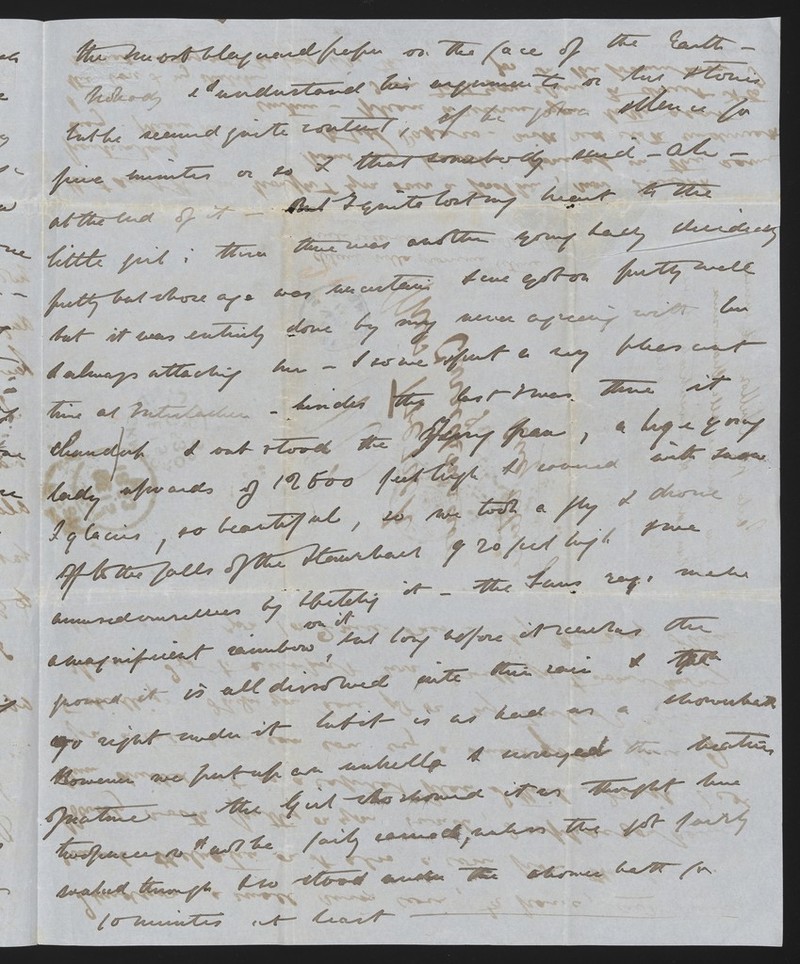 the most blaguard paper on the face of the Earth -
Nobody cd understand his arguments or his stories
but he seemed quite content, if he silence for
five minutes or so & that somebody said - Oh -
at the end of it - But I quite lost my heart to the
little girl; then there was another young lady decidedly
pretty but whose age was uncertain & we got on pretty well
but it was entirely done by my never agreeing with her
& always attacking her - & so we spent a very pleasant
time at Interlachen - besides the last & was there it
cleared up & out stood the Jung frau, a huge young
lady upwards of 12500 feet high & covered with snow
& glaciers, so beautiful, so we took a fly & drove
off to the falls of the Staubbach 920 feet high & we
amused ourselves by sketching it - the Suns rays make
a magnificent rainbow on it, but long before it reaches the
ground it is all dissolved into thin rain & to
go right under it but it is as bad as a showerbath
However we put up an umbrella & surveyed the beauties
of nature - the Girl who showed it us thought her
twopence wd not be fairly earned, unless she got fairly
soaked through & so stood under the shower bath for
10 minutes at least